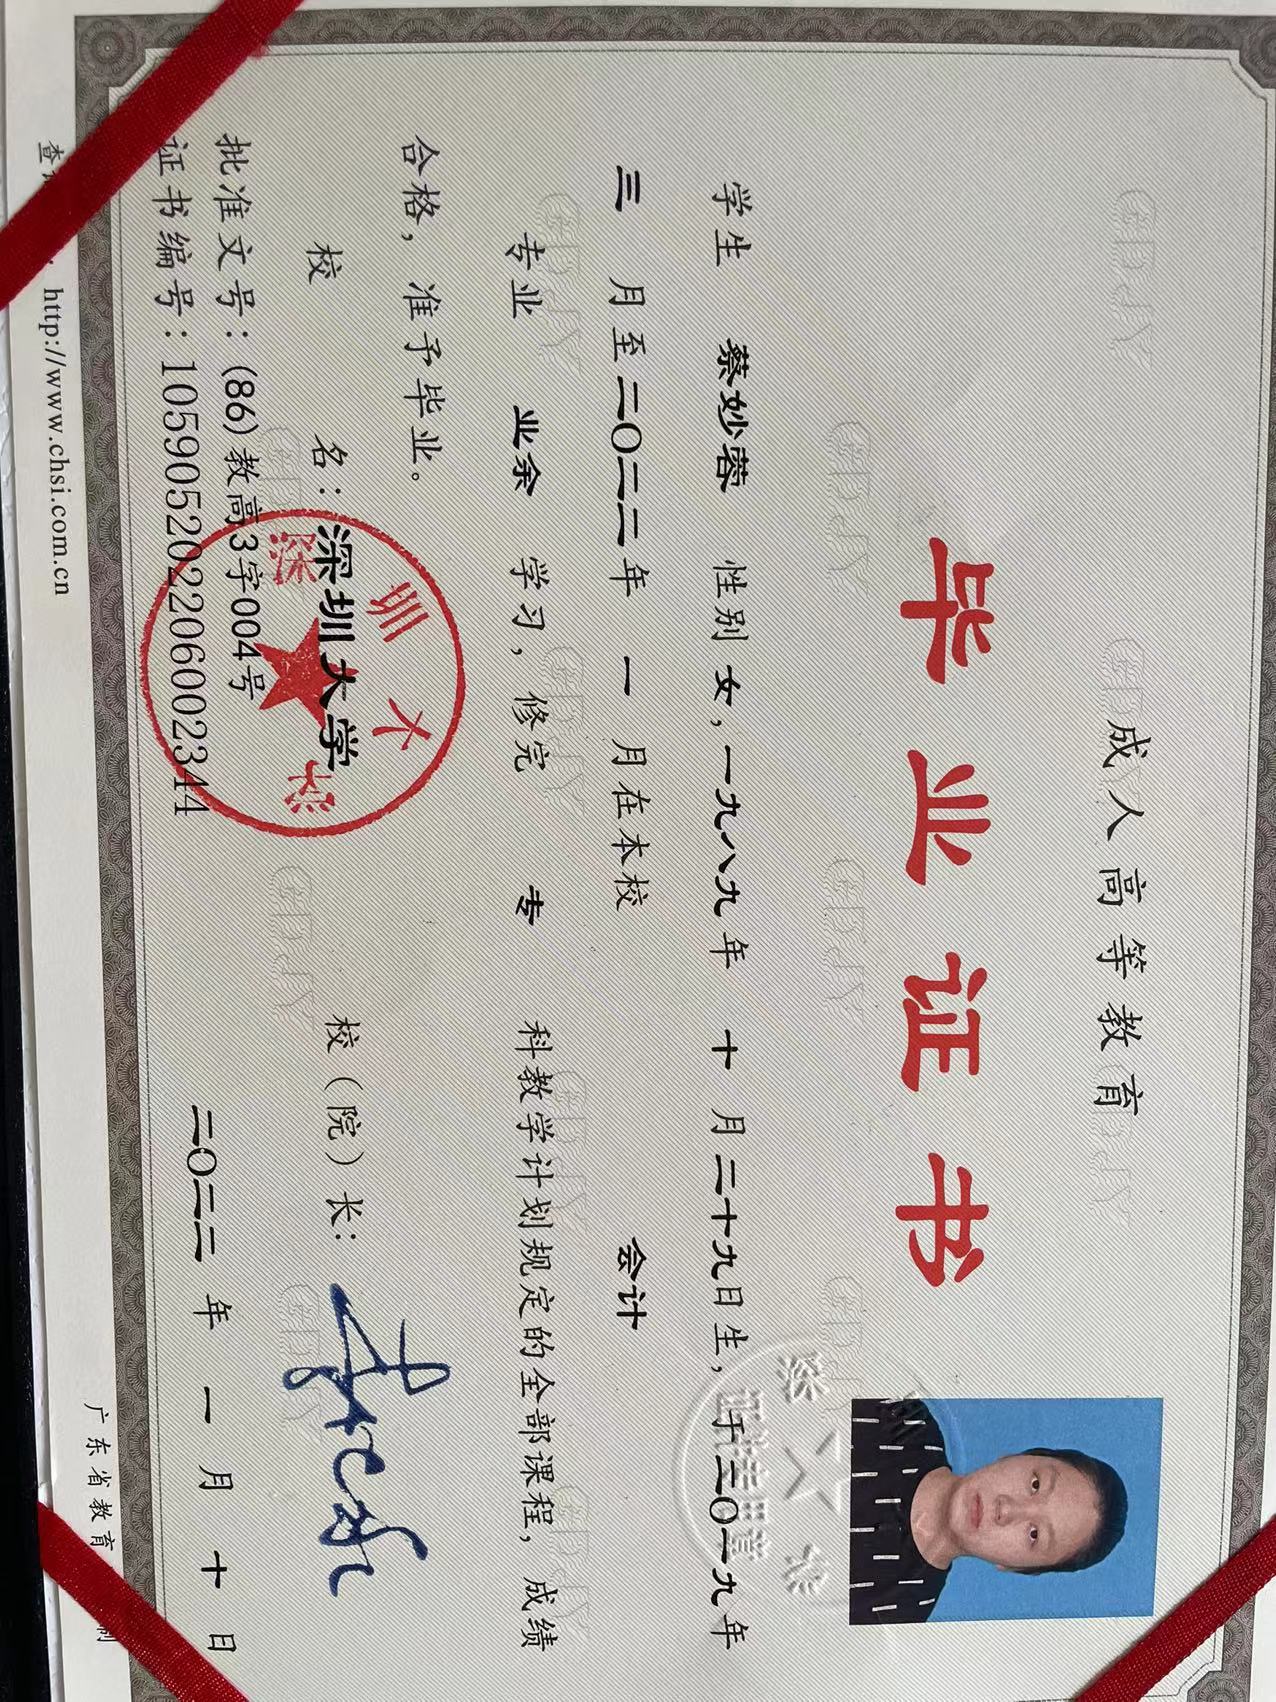 成人高等教育
毕业证书
学生 蔡妙蓉 性别 女，一九八九年 十 月二十九日生，于二〇一九年
三 月至二〇二二年 一 月在本校 会计
专业 业余 学习，修完 专 科教学计划规定的全部课程，成绩
合格，准予毕业。
校 名：深圳大学 校（院）长：
深圳大学
批准文号：(86)教高3字004号
证书编号：105905202206002344 二〇二二 年 一 月 十 日
http://www.chsi.com.cn 广东省教育